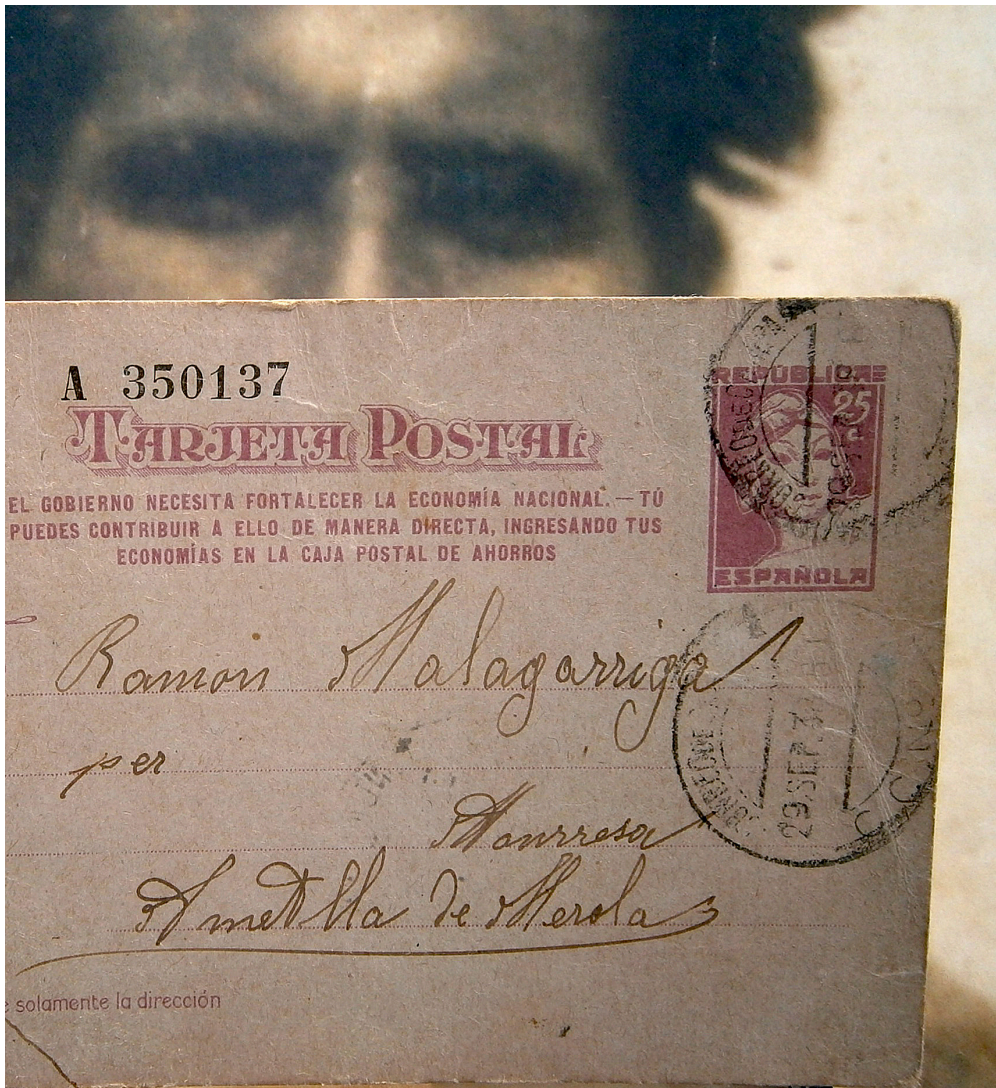 A 350137
TARJETA POSTAL
EL GOBIERNO NECESITA FORTALECER LA ECONOMÍA NACIONAL. — TÚ
PUEDES CONTRIBUIR A ELLO DE MANERA DIRECTA, INGRESANDO TUS
ECONOMÍAS EN LA CAJA POSTAL DE AHORROS
REPÚBLICA
25
ESPAÑOLA
Ramon Malagarriga
per
Manrresa
Ametlla de Merola
29 SEP
solamente la dirección